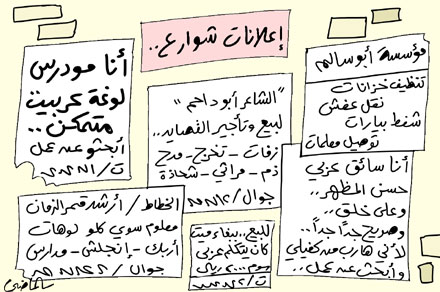 إعلانات شوارع..
مؤسسة أبو سالم
تنظيف خزانات
نقل عفش
شفط بيارات
توصيل معلمات
أنا مودرس
لوغة عربيت
متمكن..
أبحثو عنه عمل
"الشاعر أبو داحم"
لبيع وتأجير القصايد..
زفات - تخرج - مدح
ذم - مراثي - شحاذة
جوال /
أنا سائق عزبي
حسن المظهر..
وعلى خلق..
وصريح جداً جداً..
لأني هارب من كفيلي
وأبحث عنه عمل..
الخطاط / أرشد قمر الزمان
معلوم سوي كلو لوهات
أربك - إنجلش - مدارس
جوال /
للبيع.. ببغاء ميت
كان يتكلم عربي